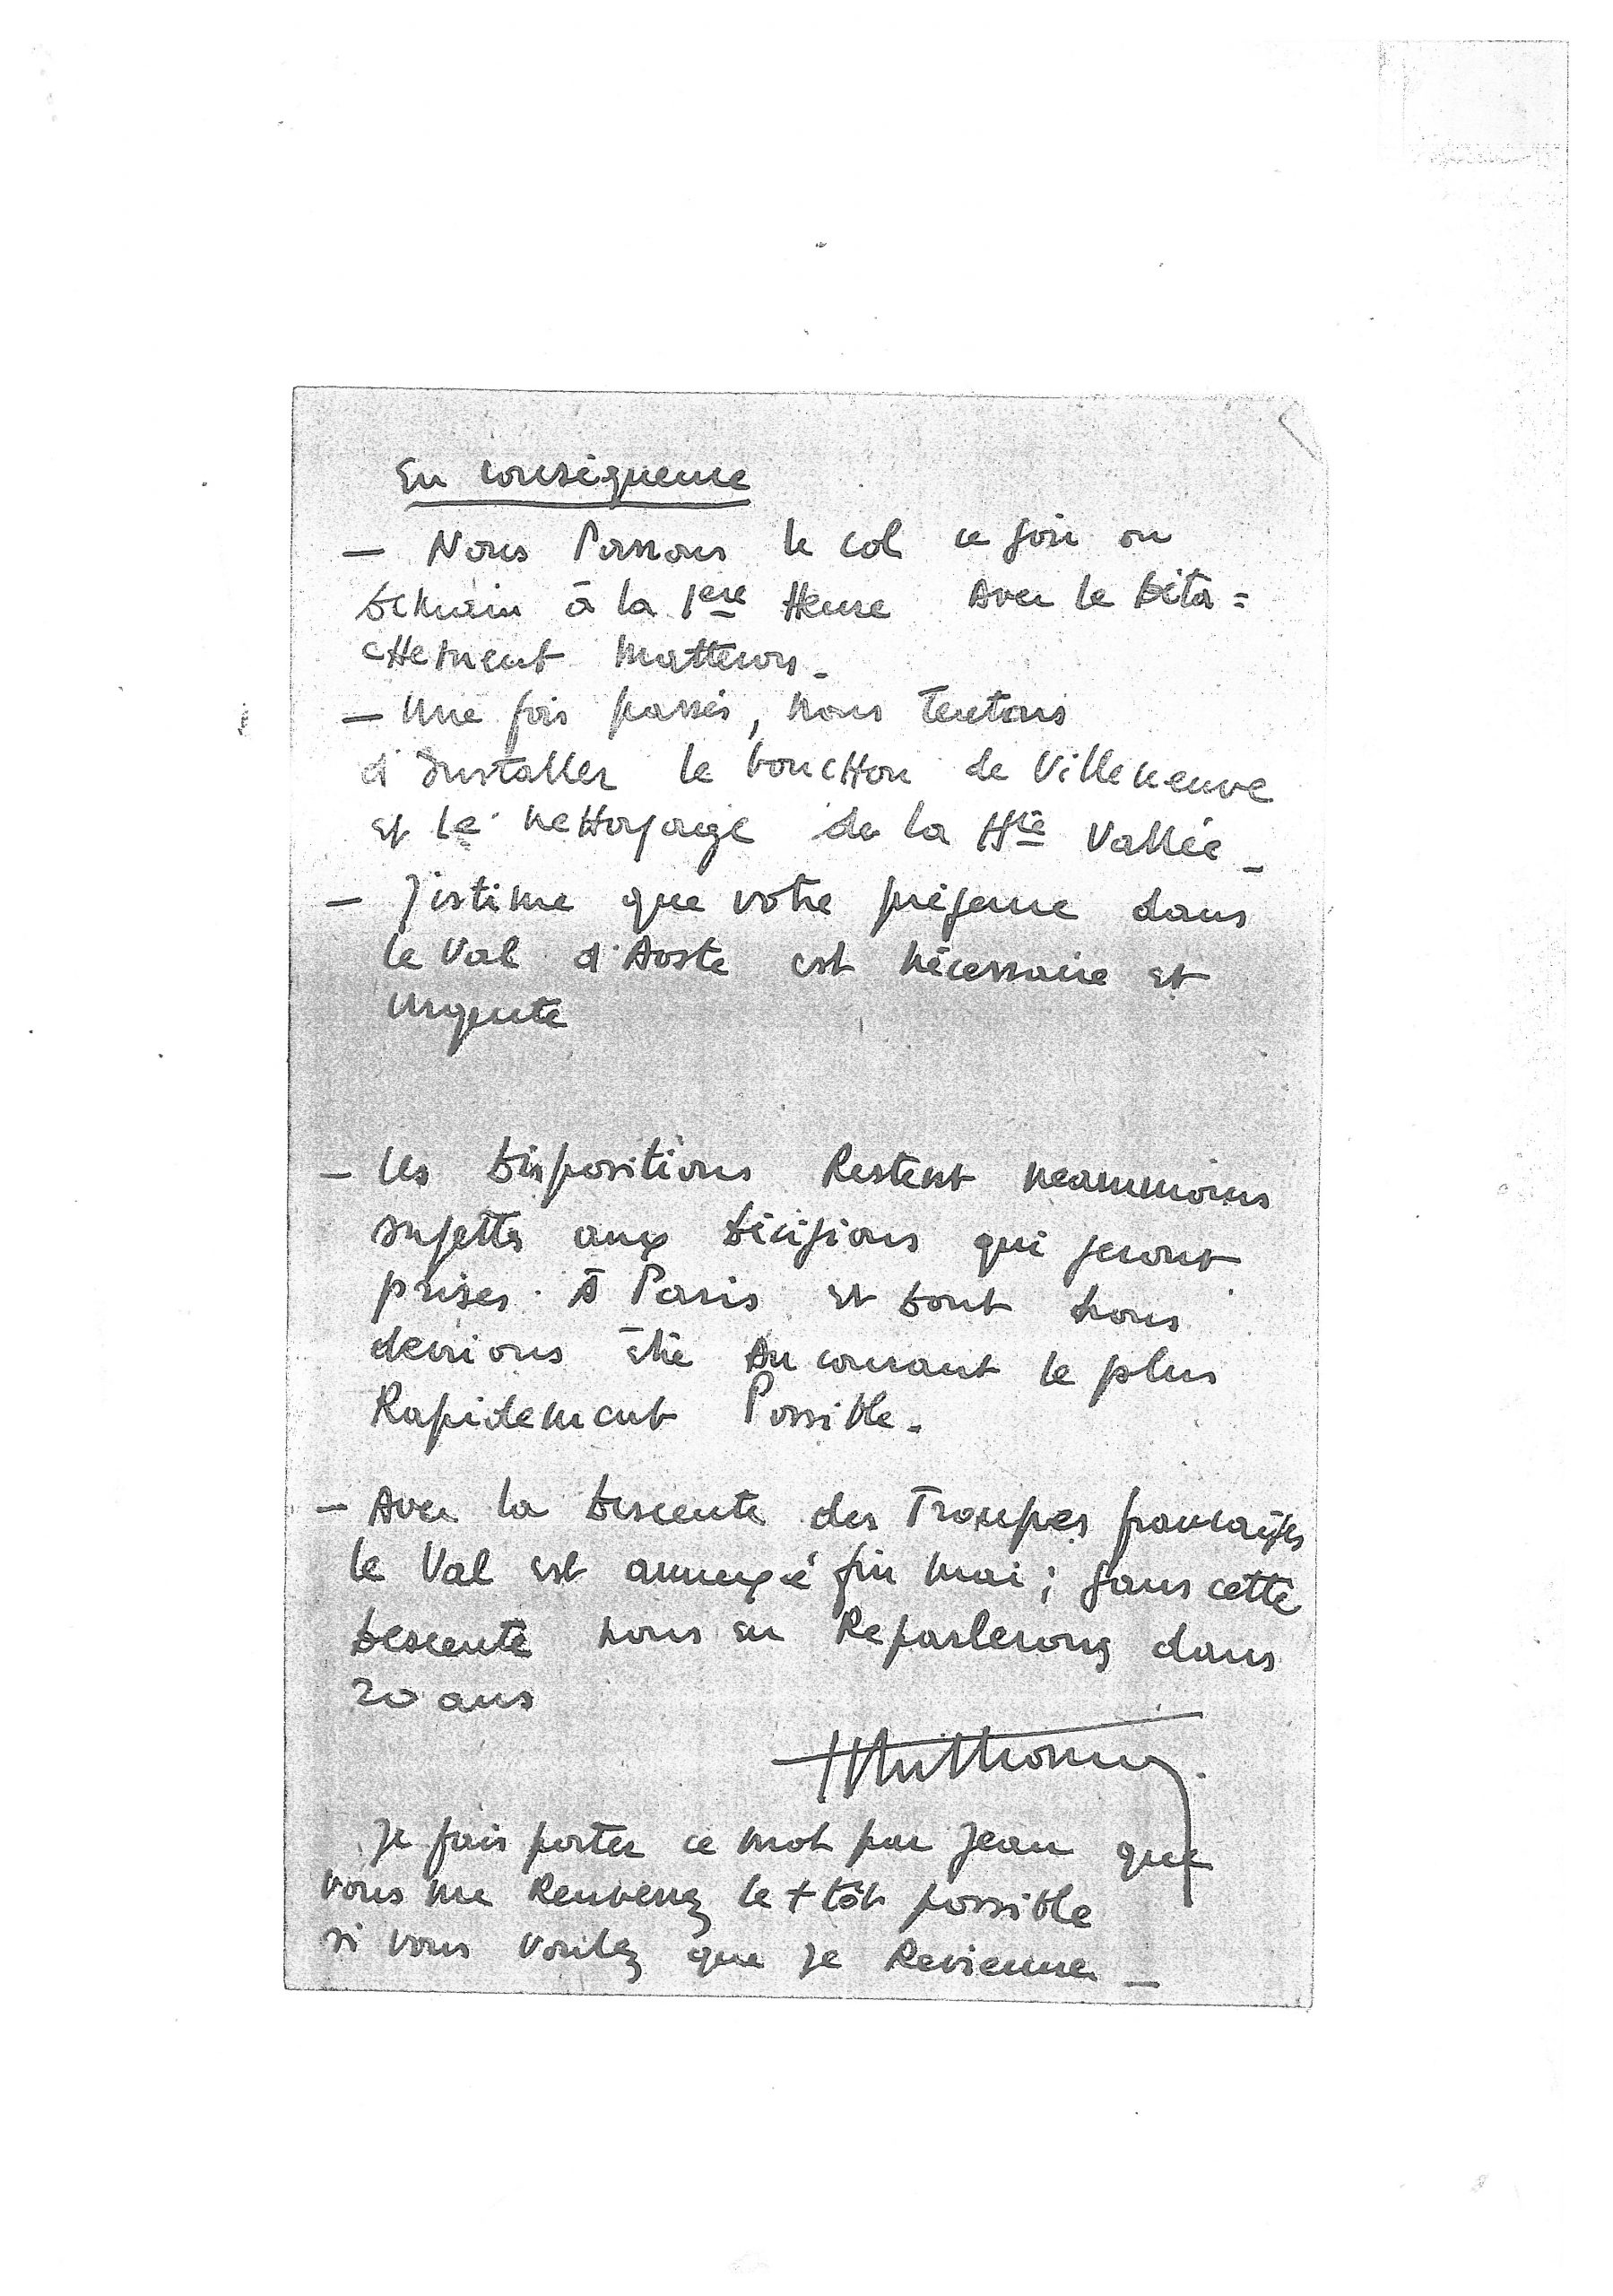 En conséquence
— Nous Passons le col ce soir ou
demain à la 1ère Heure Avec le Déta=
cHement
— Une fois passés, nous tentons
d'Installer le boucHon de Villeneuve
et le nettoyage de la Hte Vallée_
— J'estime que votre présence dans
le Val d'Aoste est nécessaire et
urgente
— Les Dispositions Restent neammoins
sujettes aux Décisions qui seront
prises À Paris et Dont nous
devrions être Au courant le plus
Rapidement Possible_
— Avec la Descente des Troupes françaises
le Val est annexé fin mai ; sans cette
Descente nous en Reparlerons dans
20 ans
Je fais porter ce mot par Jean que
vous me Renverrez le + tôt possible
si vous voulez que je Revienne_